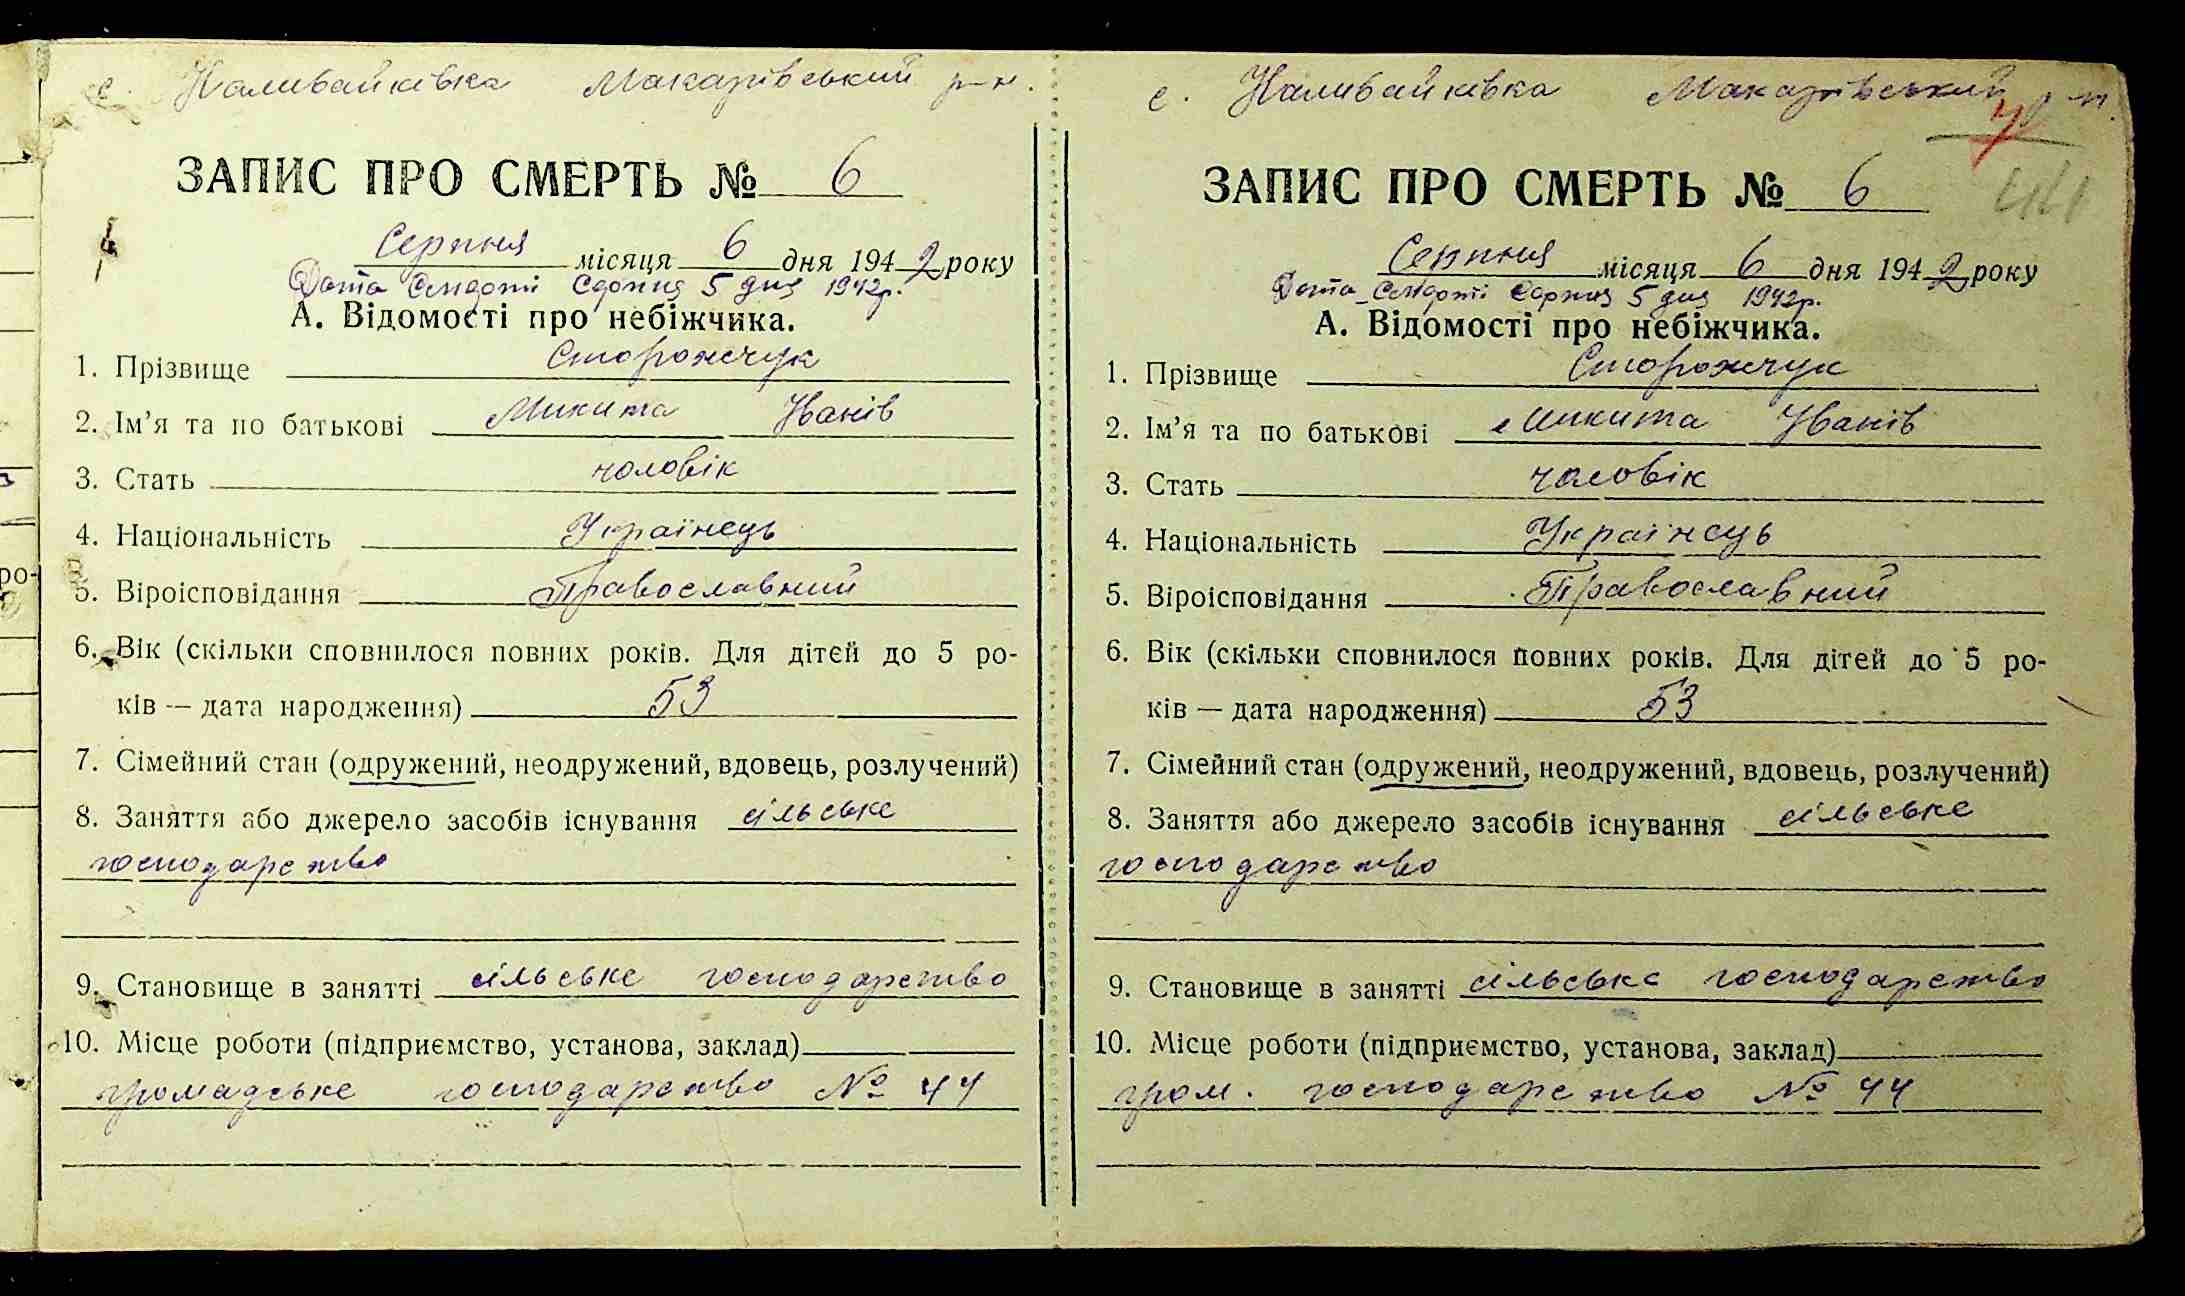 с. Наливайківка Макарівський р-н.
ЗАПИС ПРО СМЕРТЬ № 6
Серпня місяця 6 дня 1942 року
Дата Смерті Серпня 5 дня 1942р.
А. Відомості про небіжчика.
1. Прізвище Сторожчук
2. Ім’я та по батькові Микита Іванів
3. Стать чоловік
4. Національність Українець
5. Віроісповідання Православний
6. Вік (скільки сповнилося повних років. Для дітей до 5 ро-
ків — дата народження) 53
7. Сімейний стан (одружений, неодружений, вдовець, розлучений)
8. Заняття або джерело засобів існування сільське
господарство
9. Становище в занятті сільське господарство
10. Місце роботи (підприємство, установа, заклад)
громадське господарство № 44
ро-
с. Наливайківка Макарівський р н.
41
ЗАПИС ПРО СМЕРТЬ № 6
Серпня місяця 6 дня 1942 року
Дата Смерті Серпня 5 дня 1942р.
А. Відомості про небіжчика.
1. Прізвище Сторожчук
2. Ім’я та по батькові Микита Іванів
3. Стать чоловік
4. Національність Українець
5. Віроісповідання Православний
6. Вік (скільки сповнилося повних років. Для дітей до 5 ро-
ків — дата народження) 53
7. Сімейний стан (одружений, неодружений, вдовець, розлучений)
8. Заняття або джерело засобів існування сільське
господарство
9. Становище в занятті сільське господарство
10. Місце роботи (підприємство, установа, заклад)
гром. господарство № 44